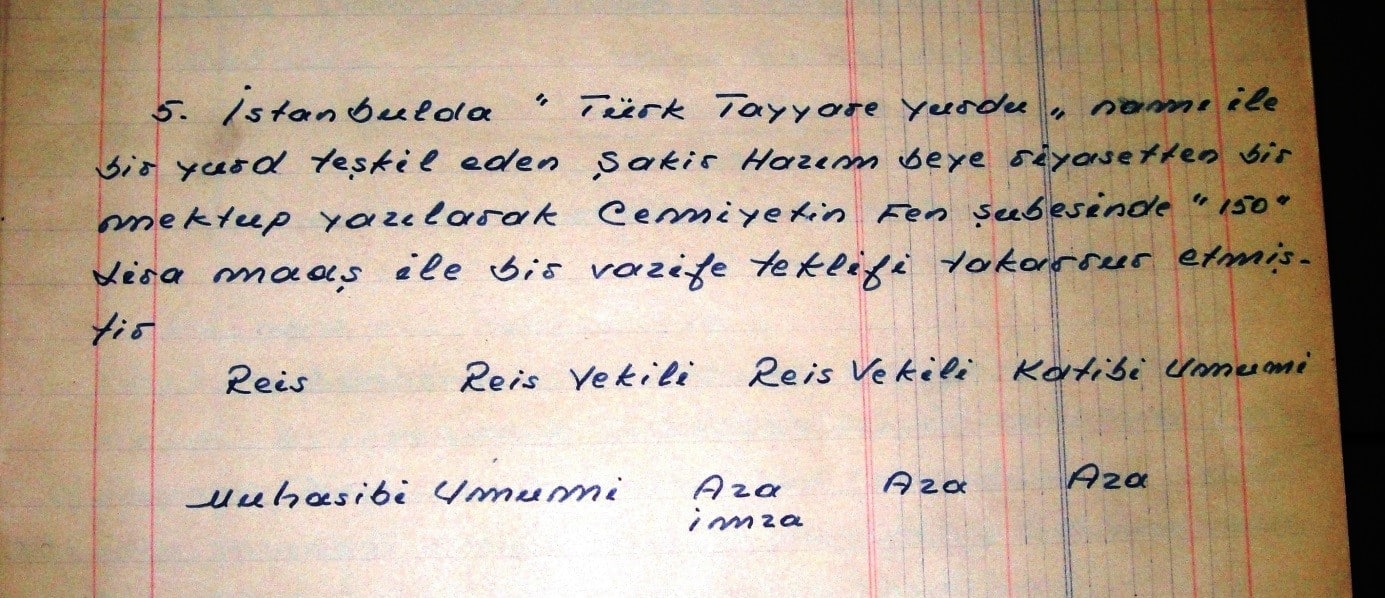 5. İstanbulda " Türk Tayyare Yurdu „ namı ile
bir yurd teşkil eden Şakir Hazım beye riyasetten bir
mektup yazılarak Cemiyetin Fen şubesinde "150"
lira maaş ile bir vazife teklifi takarrur etmiş-
tir
Reis Reis Vekili Reis Vekili Katibi Umumi
Muhasibi Umumi Aza Aza Aza
imza